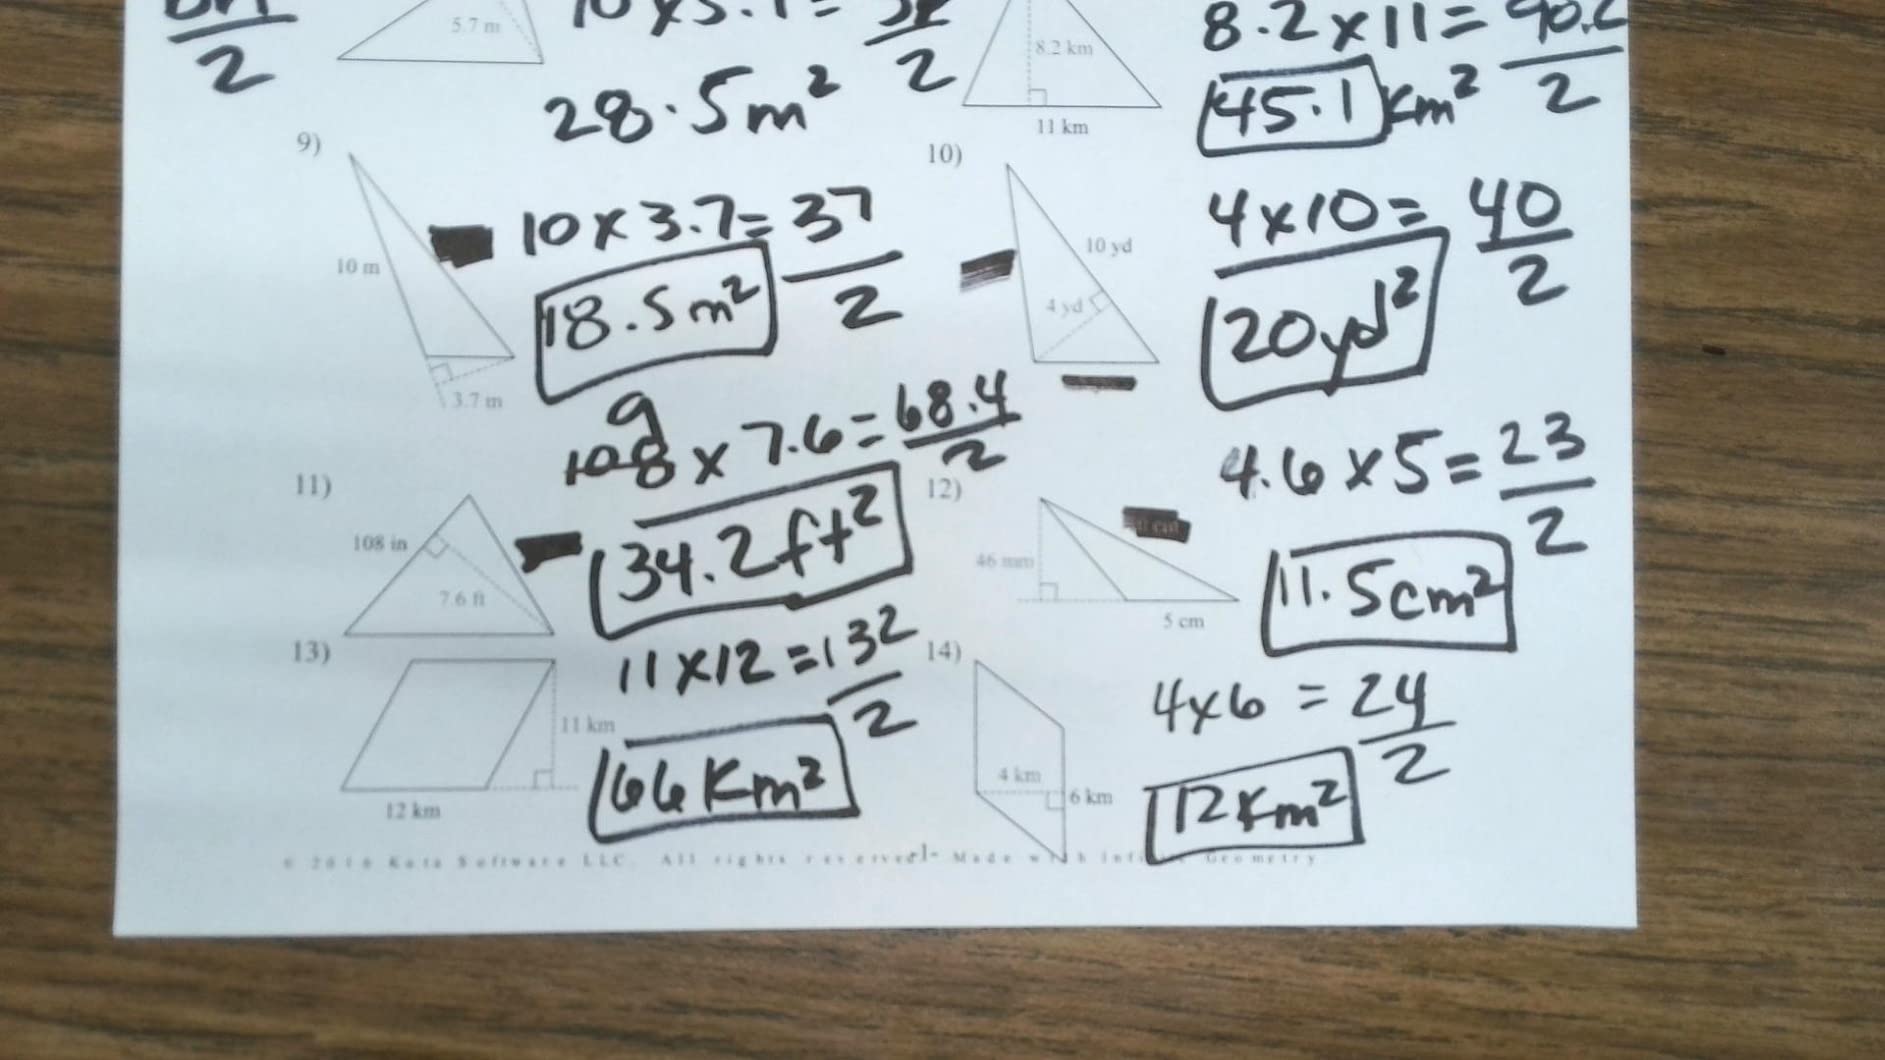 2
5.7 m
2
28.5m²
8.2 km
11 km
8.2 x 11 = 90.2
2
45.1 Km²
9)
10 m
3.7 m
10 x 3.7 = 37
2
18.5m²
10)
10 yd
4 yd
4 x 10 = 40
2
20yd²
11)
108 in
7.6 ft
9
108 x 7.6 = 68.4
2
34.2ft²
12)
46 mm
5 cm
4.6 x 5 = 23
2
11.5cm²
13)
11 km
12 km
11 x 12 = 132
2
66 Km²
14)
4 km
6 km
4 x 6 = 24
2
12 Km²
© 2016 Kuta Software LLC. All rights reserved.
-1-
Made with Infi Geometry